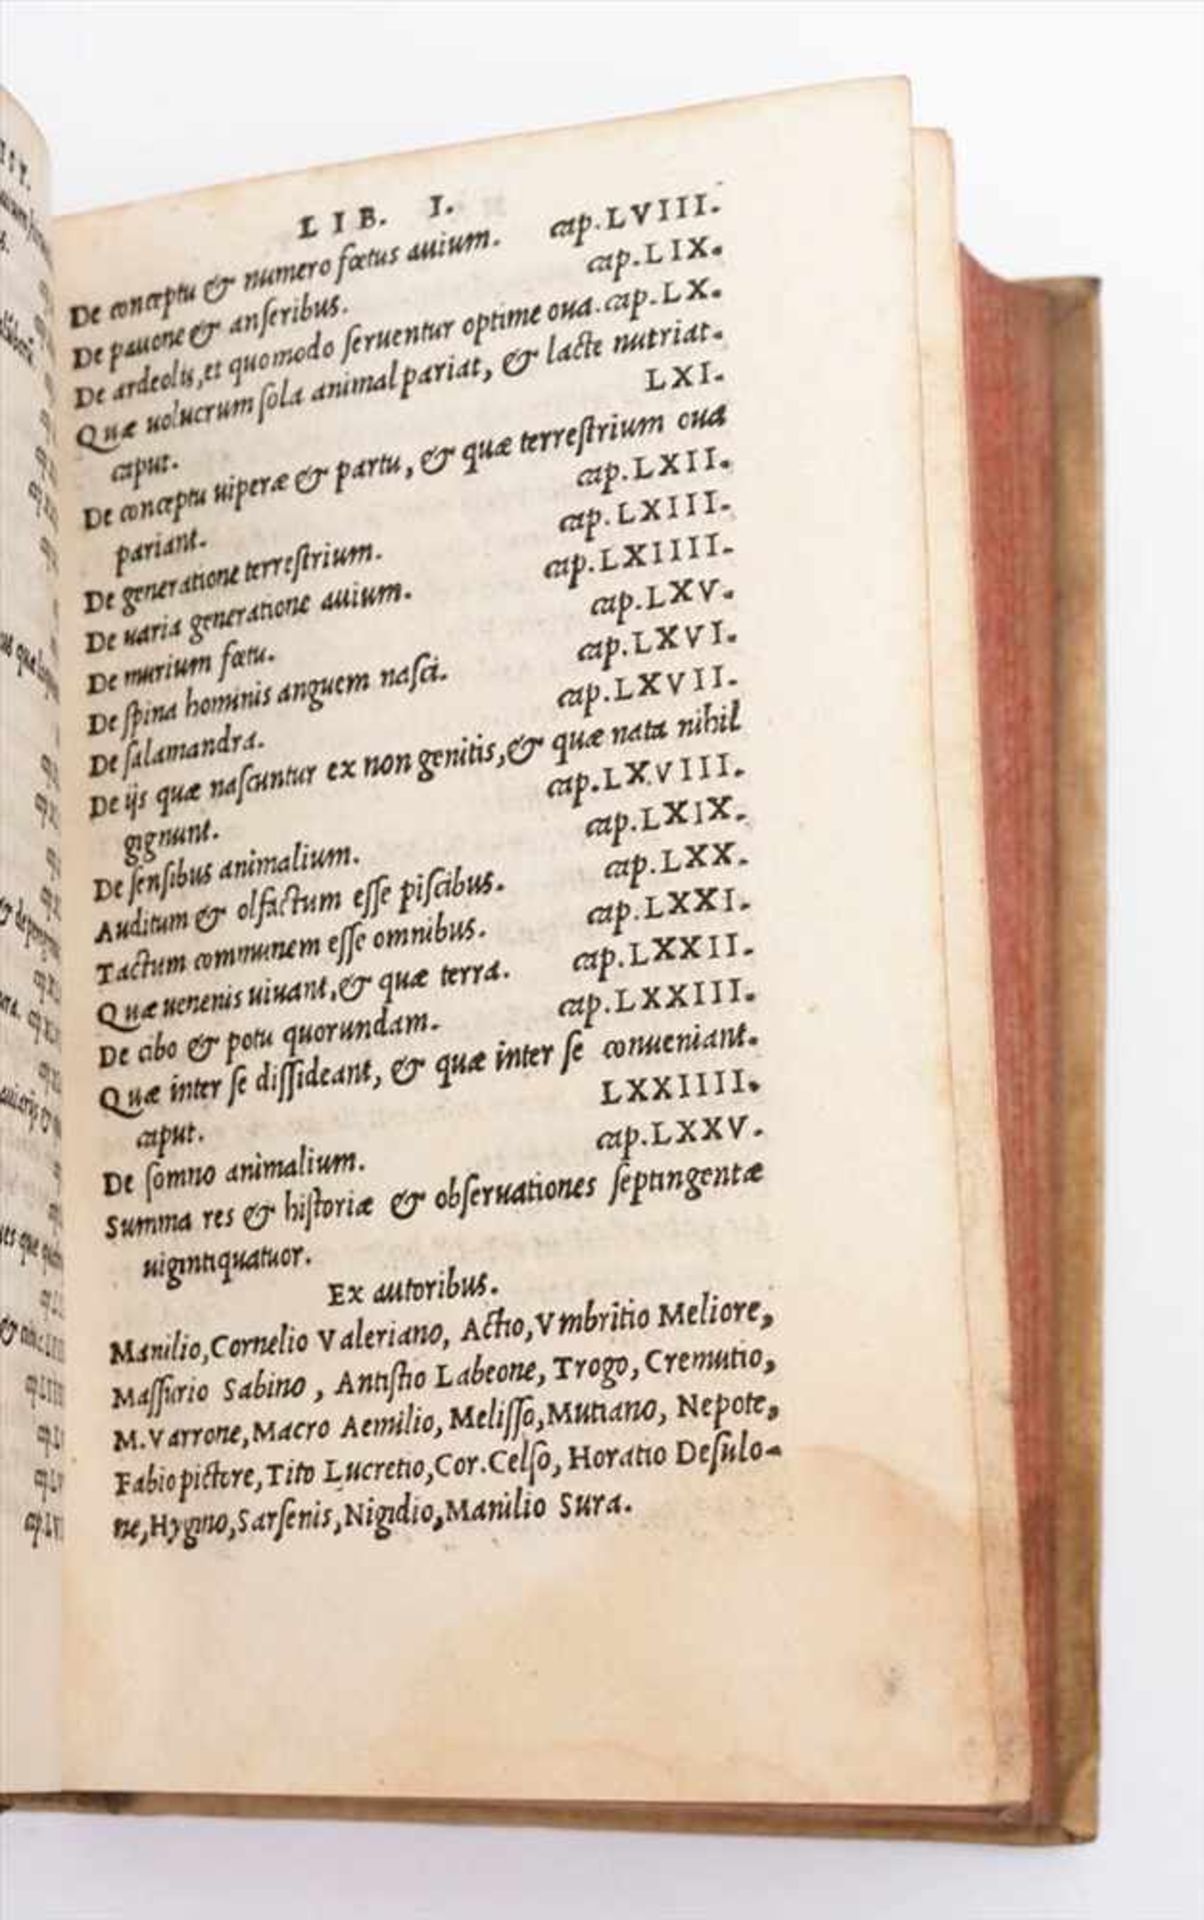 LIB. I.
De conceptu & numero fœtus auium. cap.LVIII.
De pauone & anſeribus. cap.LIX.
De ardeolis, et quomodo ſeruentur optime oua. cap.LX.
Quæ uolucrum ſola animal pariat, & lacte nutriat.
caput. LXI.
De conceptu uiperæ & partu, & quæ terreſtrium oua
pariant. cap.LXII.
De generatione terreſtrium. cap.LXIII.
De uaria generatione auium. cap.LXIIII.
De murium fœtu. cap.LXV.
De ſpina hominis anguem naſci. cap.LXVI.
De ſalamandra. cap.LXVII.
De ijs quæ naſcuntur ex non genitis, & quæ nata nihil
gignunt. cap.LXVIII.
De ſenſibus animalium. cap.LXIX.
Auditum & olfactum eſſe piſcibus. cap.LXX.
Tactum communem eſſe omnibus. cap.LXXI.
Quæ uenenis uiuant, & quæ terra. cap.LXXII.
De cibo & potu quorundam. cap.LXXIII.
Quæ inter ſe diſſideant, & quæ inter ſe conueniant.
caput. LXXIIII.
De ſomno animalium. cap.LXXV.
Summa res & hiſtoriæ & obſeruationes ſeptingentæ
uigintiquatuor.
Ex autoribus.
Manilio, Cornelio Valeriano, Actio, Vmbritio Meliore,
Maſſurio Sabino, Antiſtio Labeone, Trogo, Cremutio,
M. Varrone, Macro Aemilio, Meliſſo, Mutiano, Nepote,
Fabio pictore, Tito Lucretio, Cor. Celſo, Horatio Deſulo-
ne, Hygino, Sarſenis, Nigidio, Manilio Sura.